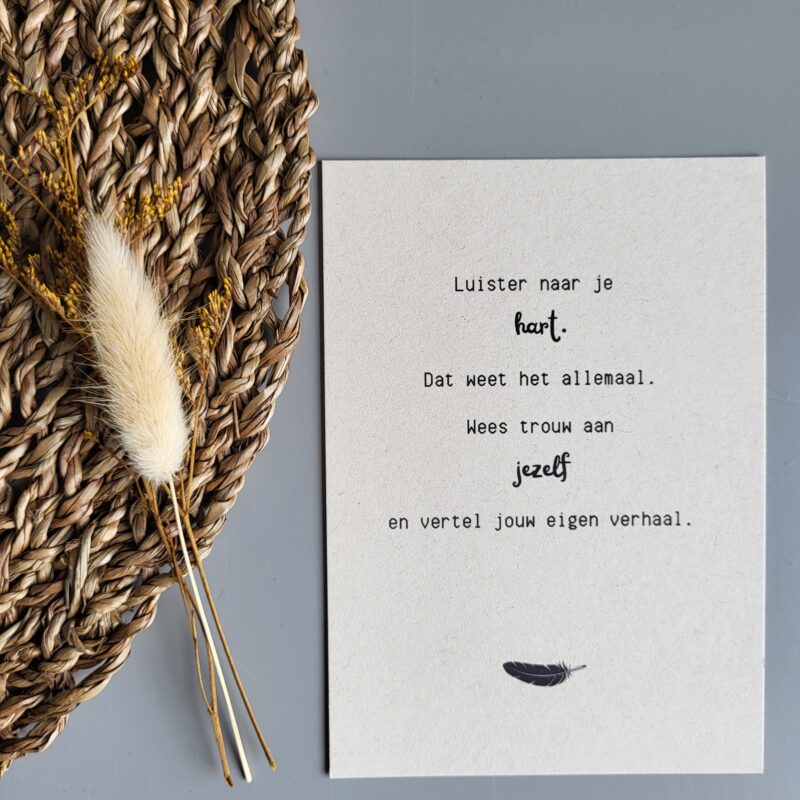 Luister naar je
hart.
Dat weet het allemaal.
Wees trouw aan
jezelf
en vertel jouw eigen verhaal.